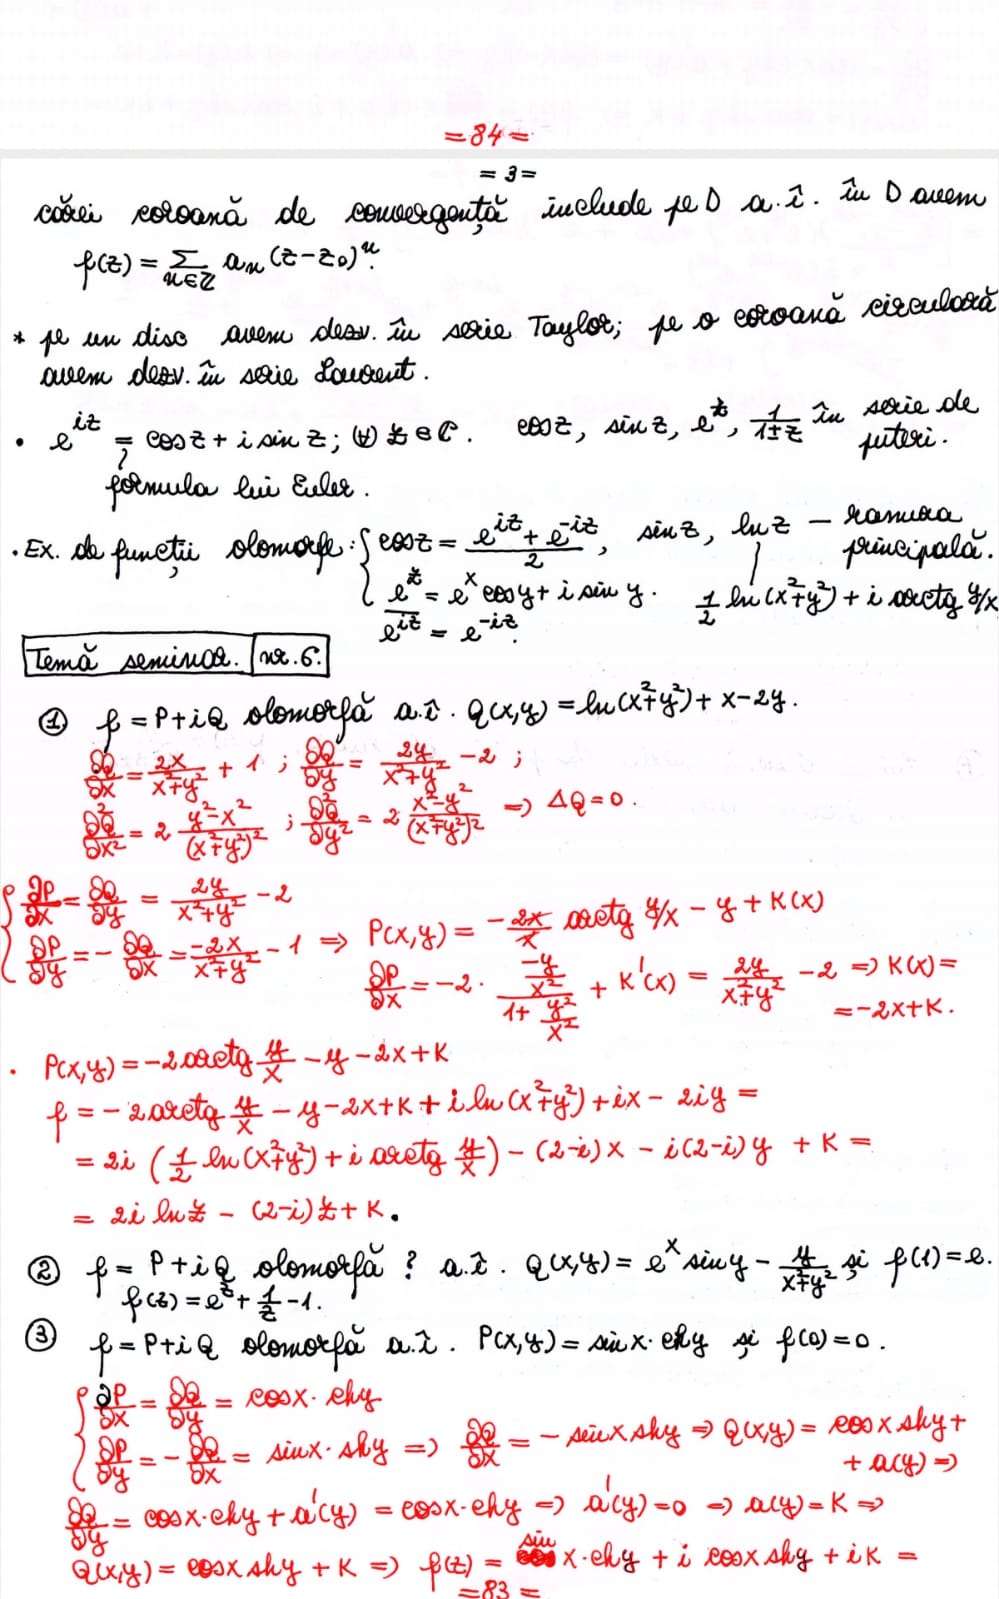 =84=
=3=
cărei coroană de convergență include pe D a.î. în D avem
f(z) = ∑_{n∈ℤ} a_n (z-z_0)^n.
* pe un disc avem dezv. în serie Taylor; pe o coroană circulară
avem dezv. în serie Laurent.
• e^{iz} = cos z + i sin z; (∀) z ∈ ℂ. cos z, sin z, e^z, 1/(1±z) în serie de
puteri.
formula lui Euler.
• Ex. de funcții olomorfe: { cos z = (e^{iz} + e^{-iz})/2, sin z, ln z – ramura
principală.
e^z = e^x cos y + i sin y. 1/2 ln(x²+y²) + i arctg y/x
e^{iz} = e^{-iz}.
Temă seminar. nr. 6.
① f = P+iQ olomorfă a.î. Q(x,y) = ln(x²+y²) + x-2y.
∂Q/∂x = 2x/(x²+y²) + 1 ; ∂Q/∂y = 2y/(x²+y²) - 2 ;
∂²Q/∂x² = 2 (y²-x²)/(x²+y²)² ; ∂²Q/∂y² = 2 (x²-y²)/(x²+y²)² => ΔQ = 0.
{ ∂P/∂x = ∂Q/∂y = 2y/(x²+y²) - 2
∂P/∂y = - ∂Q/∂x = -2x/(x²+y²) - 1 => P(x,y) = - 2x/x arctg y/x - y + K(x)
∂P/∂x = -2 · (-y/x²)/(1 + y²/x²) + K'(x) = 2y/(x²+y²) - 2 => K(x) =
= -2x+K.
• P(x,y) = -2 arctg y/x - y - 2x + K
f = -2 arctg y/x - y - 2x + K + i ln(x²+y²) + ix - 2iy =
= 2i (1/2 ln(x²+y²) + i arctg y/x) - (2-i)x - i(2-i)y + K =
= 2i ln z - (2-i)z + K.
② f = P+iQ olomorfă ? a.î. Q(x,y) = e^x sin y - y/(x²+y²) și f(1) = e.
f(z) = e^z + 1/z - 1.
③ f = P+iQ olomorfă a.î. P(x,y) = sin x · ch y și f(0) = 0.
{ ∂P/∂x = ∂Q/∂y = cos x · ch y
∂P/∂y = - ∂Q/∂x = sin x · sh y => ∂Q/∂x = - sin x sh y => Q(x,y) = cos x sh y +
+ a(y) =>
∂Q/∂y = cos x · ch y + a'(y) = cos x · ch y => a'(y) = 0 => a(y) = K =>
Q(x,y) = cos x sh y + K => f(z) = sin x · ch y + i cos x sh y + iK =
=83=